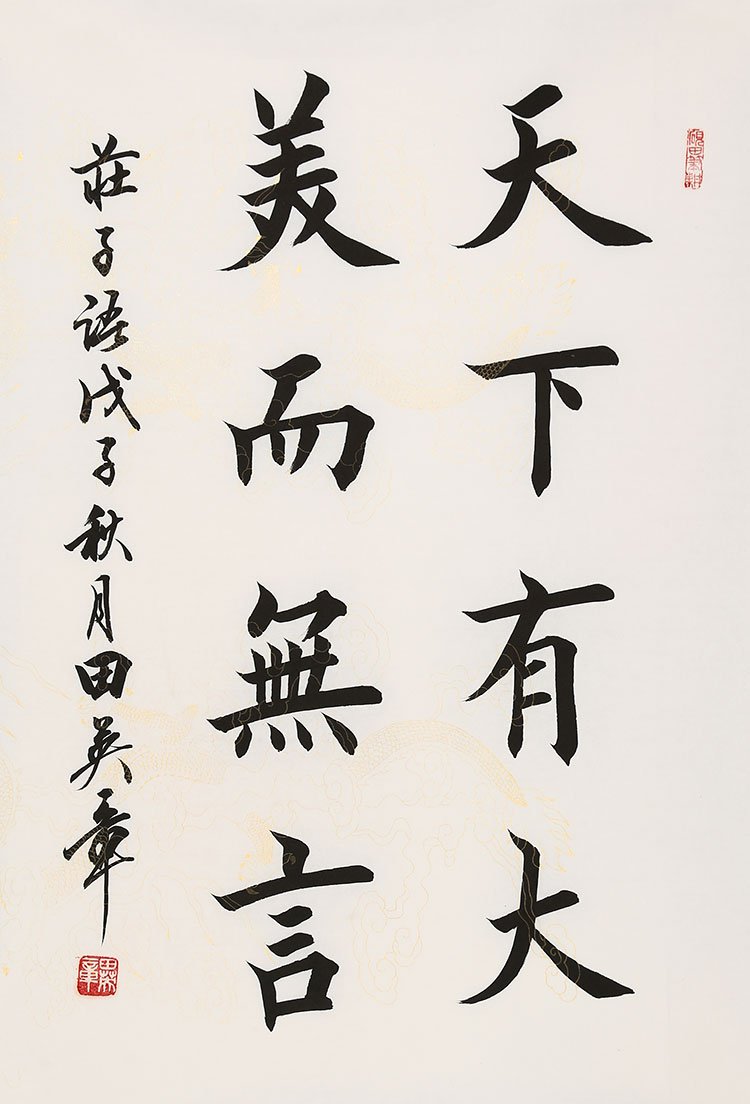 天下有大
美而無言
莊子語戊子秋月田英章